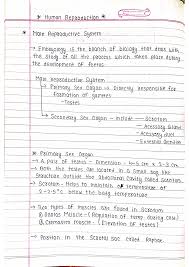 * Human Reproduction *
* Male Reproductive System
→ Embryology is the branch of biology that deals with
the study of all the process which takes place during
the development of foetus.
Male Reproductive System
→ Primary Sex Organ → Directly responsible for
formation of gametes
- Testes
→ Secondary Sex Organ - Include - Scrotum
- Accessory Gland
- Accessory Duct
- External
* Primary Sex Organ
→ A pair of testes - Dimension - 4-5 cm x 2-3 cm
→ Both the testes are located in a small bag like
structure outside the abdominal cavity called scrotum.
→ Scrotum - Helps to maintain the temperature of
2-2.5°C below the body temperature.
→ Two types of muscles are found in Scrotum
① Dartos Muscle - (Regulation of temp during cold)
② Cremaster Muscle - (Elevation of testes)
→ Position in the Scrotal Sac called Raphae.